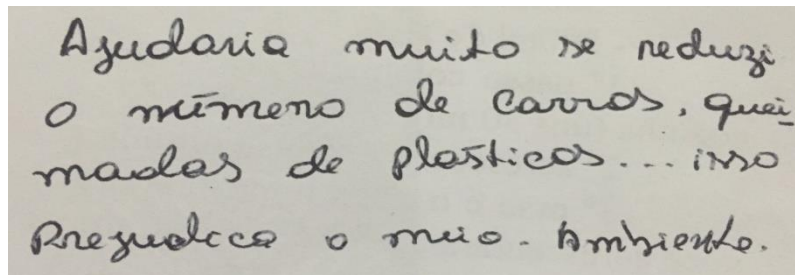 Ajudaria muito se reduzi
o número de carros, quei-
madas de plásticos... isso
Prejudica o meio. Ambiente.